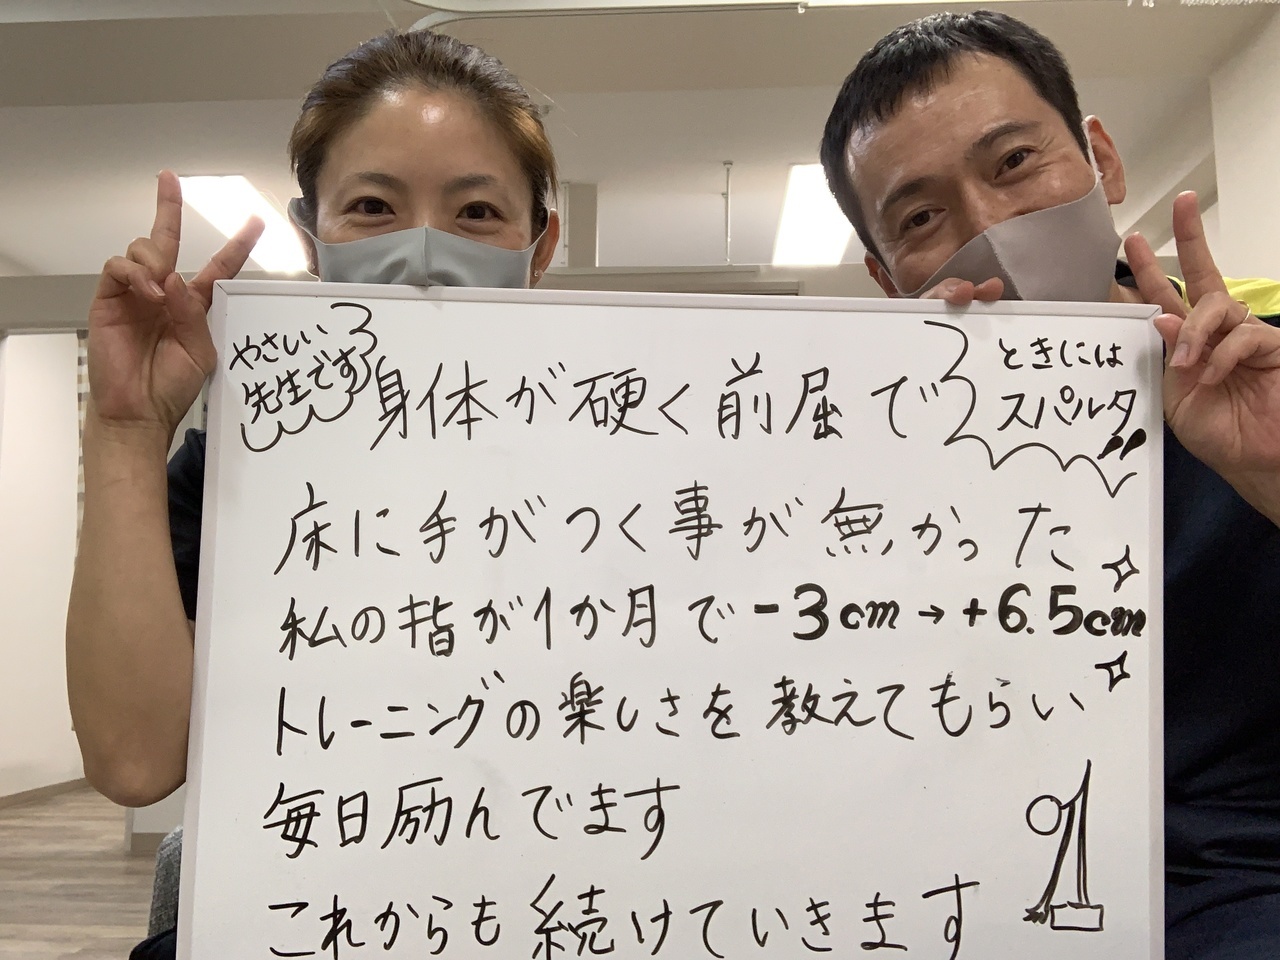 やさしい
先生です
ときには
スパルタ
身体が硬く前屈で
床に手がつく事が無かった
私の指が1か月で-3cm→+6.5cm
トレーニングの楽しさを教えてもらい
毎日励んでます
これからも続けていきます